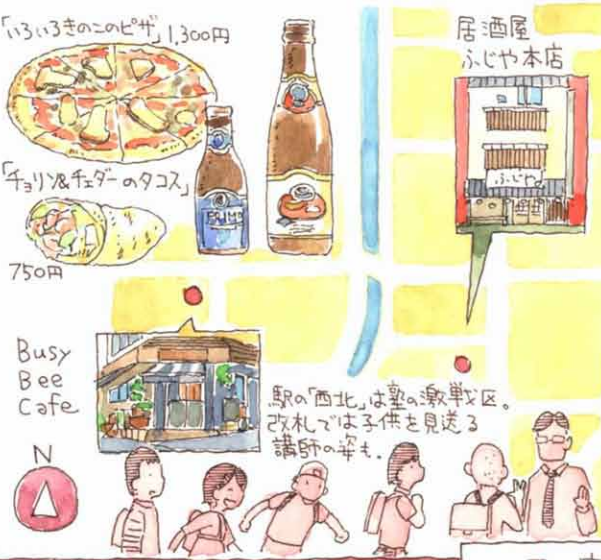 「いろいろきのこのピザ」1,300円
「チョリソ&チェダーのタコス」
750円
居酒屋
ふじや本店
ふじや
PRIMO
Busy
Bee
Cafe
駅の「西北」は塾の激戦区。
改札では子供を見送る
講師の姿も。
N